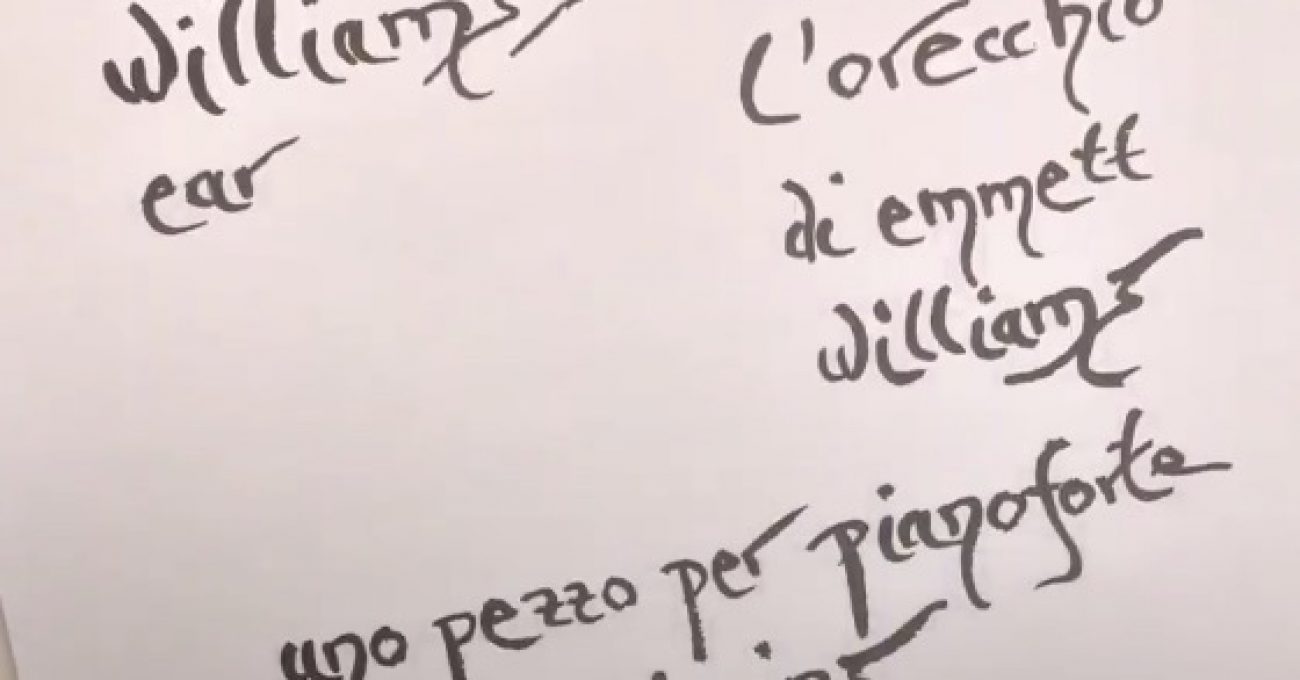 williams
ear
l'orecchio
di emmett
williams
uno pezzo per pianoforte